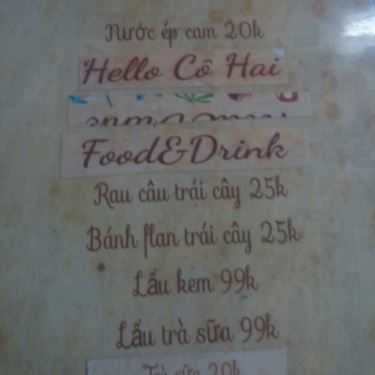 Nước ép cam 20k
Hello Cô Hai
Food&Drink
Rau câu trái cây 25k
Bánh flan trái cây 25k
Lẩu kem 99k
Lẩu trà sữa 99k
Trà sữa 20k